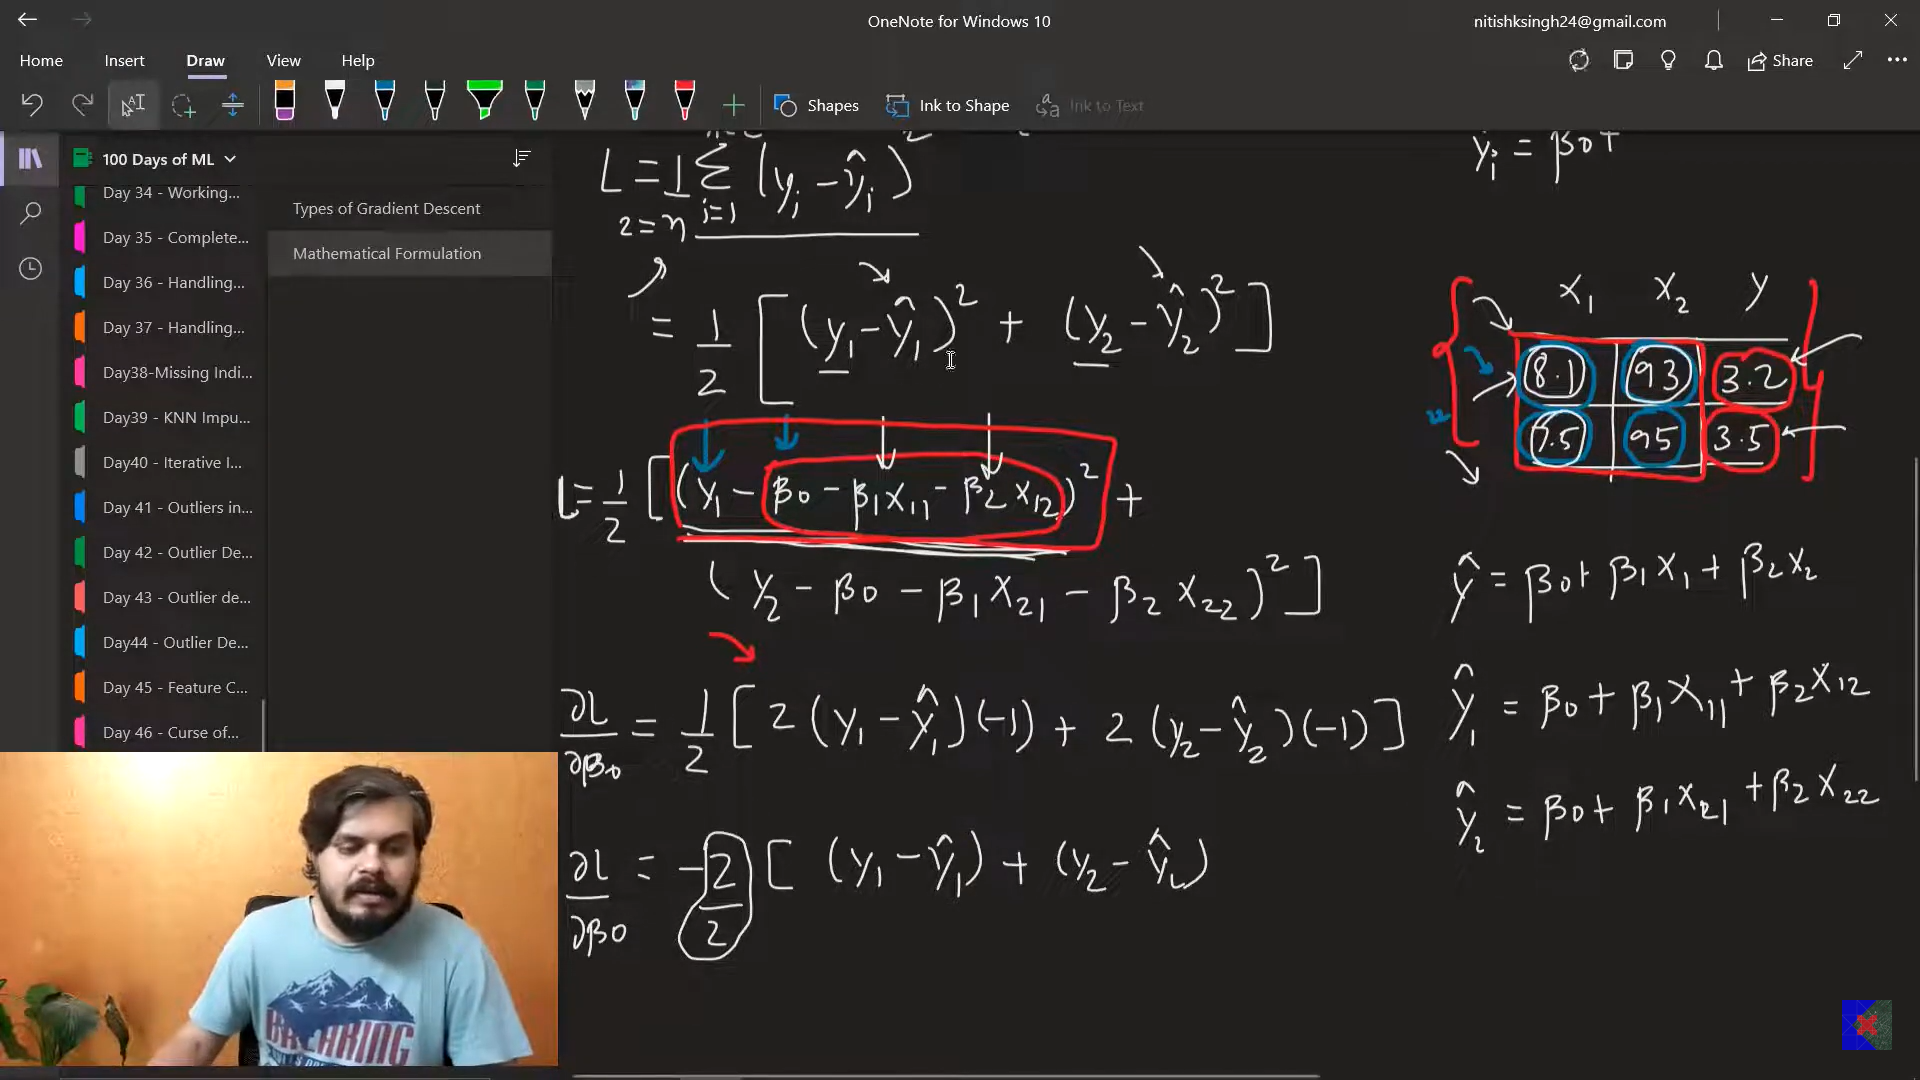 OneNote for Windows 10
nitishksingh24@gmail.com
Home Insert Draw View Help
Share
Shapes Ink to Shape Ink to Text
100 Days of ML
Day 34 - Working...
Day 35 - Complete...
Day 36 - Handling...
Day 37 - Handling...
Day38-Missing Indi...
Day39 - KNN Impu...
Day40 - Iterative I...
Day 41 - Outliers in...
Day 42 - Outlier De...
Day 43 - Outlier de...
Day44 - Outlier De...
Day 45 - Feature C...
Day 46 - Curse of...
Types of Gradient Descent
Mathematical Formulation
L = 1/2=n Σ i=1 (yi - ŷi)²
= 1/2 [ (y1 - ŷ1)² + (y2 - ŷ2)² ]
L = 1/2 [ (y1 - β0 - β1X11 - β2X12)² +
( y2 - β0 - β1X21 - β2X22 )² ]
∂L/∂β0 = 1/2 [ 2 (y1 - ŷ1)(-1) + 2 (y2 - ŷ2)(-1) ]
∂L/∂β0 = -2/2 [ (y1 - ŷ1) + (y2 - ŷ2)
ŷi = β0 +
X1 X2 Y
8.1 93 3.2
7.5 95 3.5
ŷ = β0 + β1X1 + β2X2
ŷ1 = β0 + β1X11 + β2X12
ŷ2 = β0 + β1X21 + β2X22
BREAKING